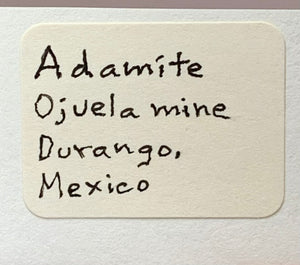 Adamite
Ojuela mine
Durango,
Mexico